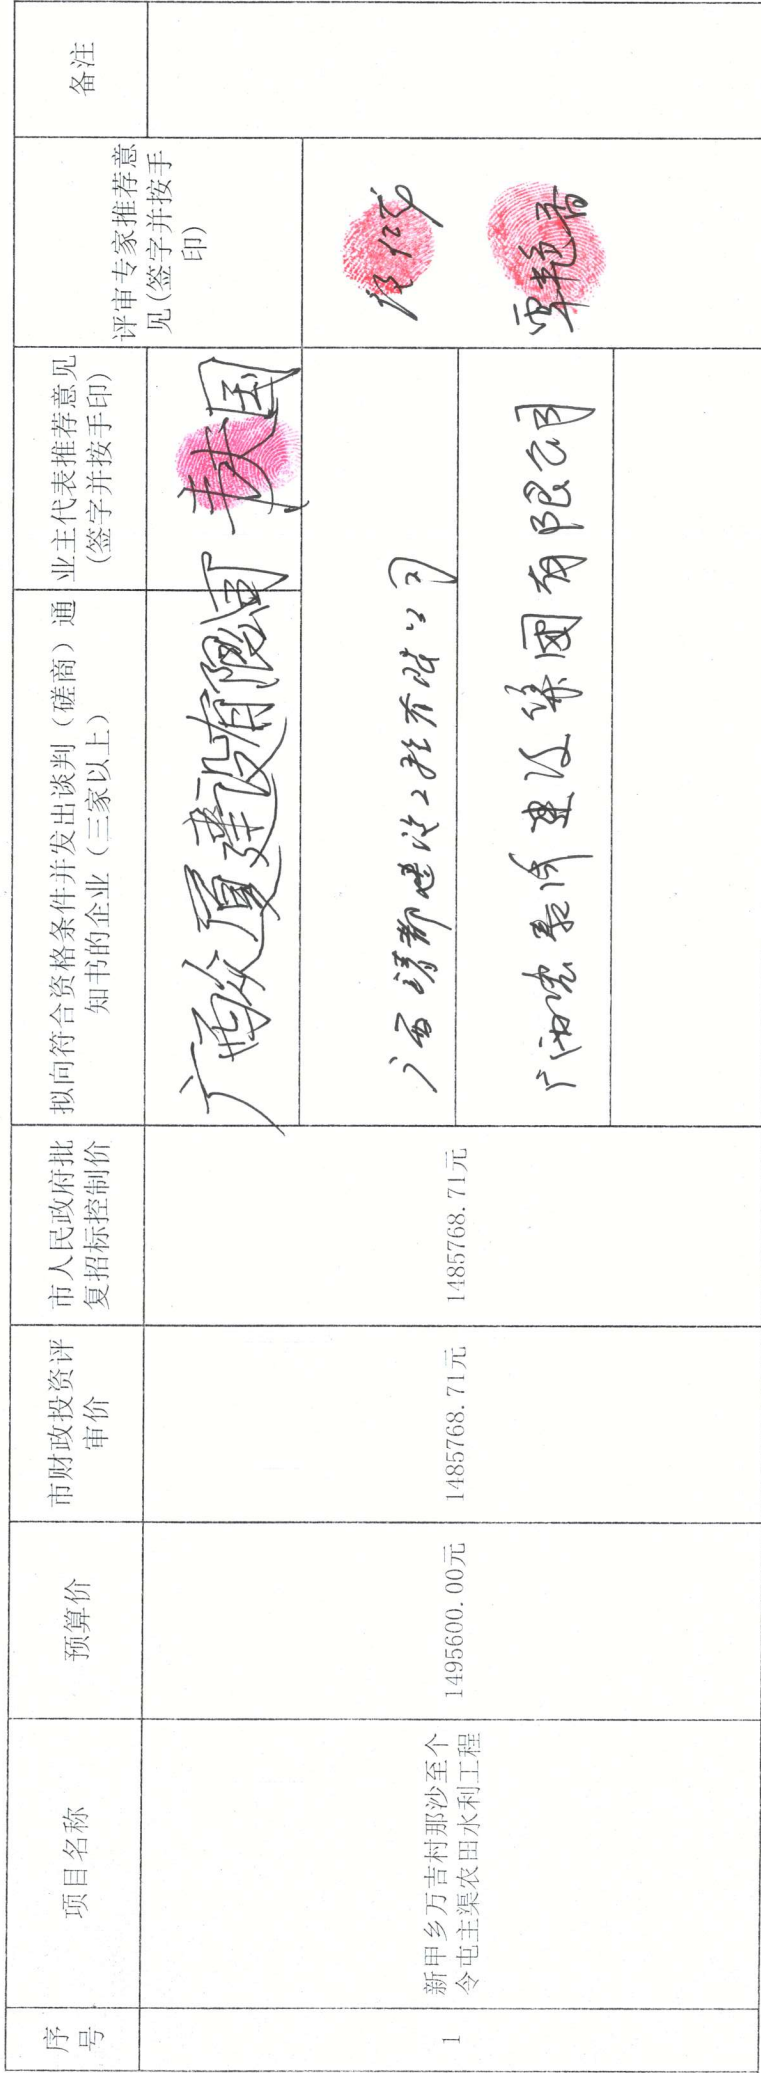 序
号
项目名称
预算价
市财政投资评
审价
市人民政府批
复招标控制价
拟向符合资格条件并发出谈判（磋商）通
知书的企业（三家以上）
业主代表推荐意见
(签字并按手印)
评审专家推荐意
见(签字并按手
印)
备注
1
新甲乡万吉村那沙至个
令屯主渠农田水利工程
1495600.00元
1485768.71元
1485768.71元
广西众厦建设有限公司
广西靖都建设工程有限公司
建设集团有限公司